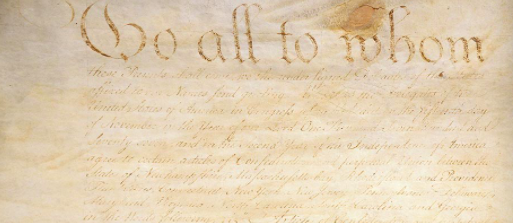 To all to whom
these Presents shall come, we the undersigned Delegates of the States
affixed to our Names send greeting. Whereas the Delegates of the
United States of America in Congress assembled did on the fifteenth day
of November in the Year of our Lord One Thousand Seven Hundred and
Seventy seven, and in the Second Year of the Independence of America
agree to certain articles of Confederation and perpetual Union between the
States of Newhampshire, Massachusetts-bay, Rhodeisland and Providence
Plantations, Connecticut, New York, New Jersey, Pennsylvania, Delaware,
Maryland, Virginia, North-Carolina, South-Carolina and Georgia
in the Words following,